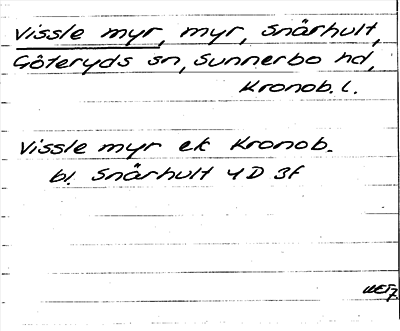 Vissle myr, myr, Snårhult,
Göteryds sn, Sunnerbo hd,
Kronob. l.
Vissle myr ek Kronob.
bl. Snårhult 4D 3f